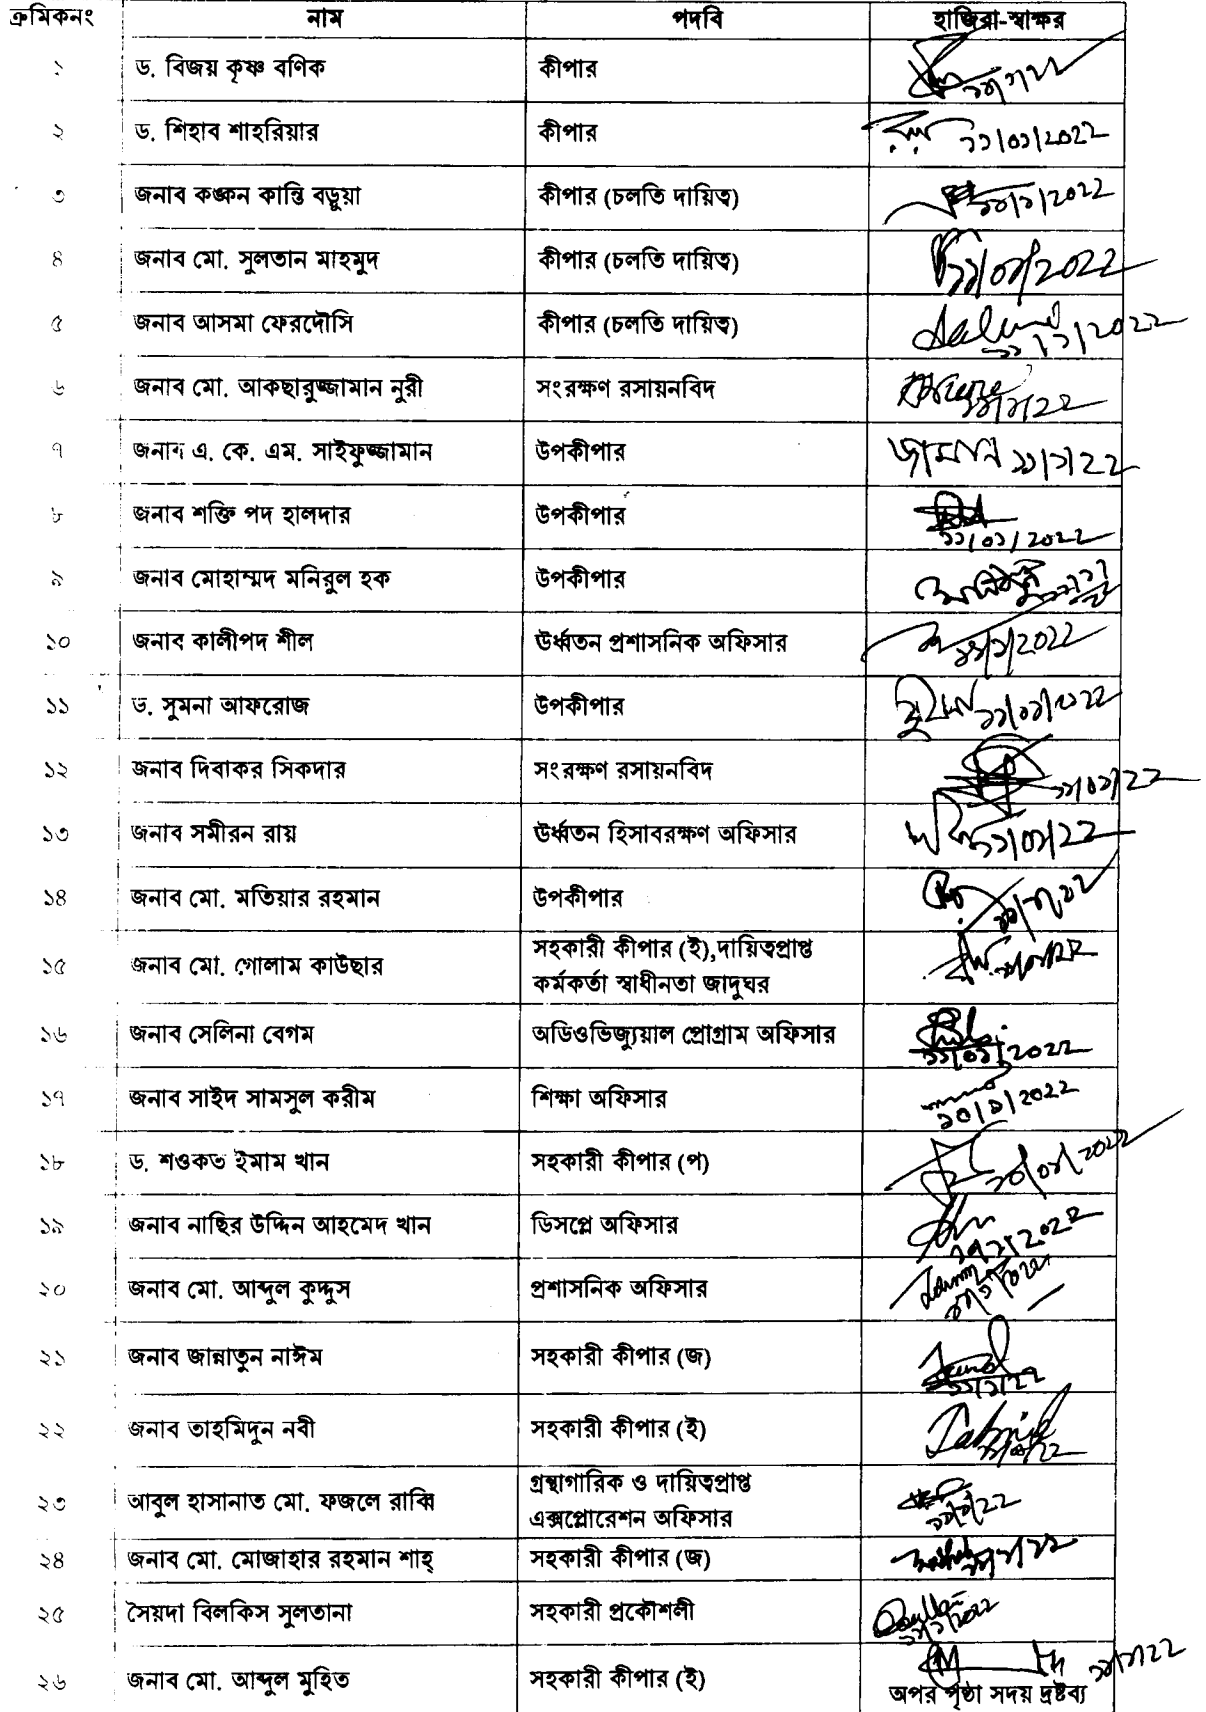 ক্রমিকনং নাম পদবি হাজিরা-স্বাক্ষর
১ ড. বিজয় কৃষ্ণ বণিক কীপার
২ ড. শিহাব শাহরিয়ার কীপার ১১/০১/2022
৩ জনাব কঙ্কন কান্তি বড়ুয়া কীপার (চলতি দায়িত্ব)
৪ জনাব মো. সুলতান মাহমুদ কীপার (চলতি দায়িত্ব) ১১/০১/2022
৫ জনাব আসমা ফেরদৌসি কীপার (চলতি দায়িত্ব) ১১/১/2022
৬ জনাব মো. আকছারুজ্জামান নুরী সংরক্ষণ রসায়নবিদ
৭ জনাব এ. কে. এম. সাইফুজ্জামান উপকীপার জামান ১১/১/22
৮ জনাব শক্তি পদ হালদার উপকীপার ১১/০১/2022
৯ জনাব মোহাম্মদ মনিরুল হক উপকীপার
১০ জনাব কালীপদ শীল ঊর্ধ্বতন প্রশাসনিক অফিসার
১১ ড. সুমনা আফরোজ উপকীপার ১১/০১/২০22
১২ জনাব দিবাকর সিকদার সংরক্ষণ রসায়নবিদ ১১/০১/22
১৩ জনাব সমীরন রায় ঊর্ধ্বতন হিসাবরক্ষণ অফিসার ১১/০১/22
১৪ জনাব মো. মতিয়ার রহমান উপকীপার
১৫ জনাব মো. গোলাম কাউছার সহকারী কীপার (ই),দায়িত্বপ্রাপ্ত
কর্মকর্তা স্বাধীনতা জাদুঘর
১৬ জনাব সেলিনা বেগম অডিওভিজ্যুয়াল প্রোগ্রাম অফিসার ১১/০১/2022
১৭ জনাব সাইদ সামসুল করীম শিক্ষা অফিসার ১০/১/2022
১৮ ড. শওকত ইমাম খান সহকারী কীপার (প)
১৯ জনাব নাছির উদ্দিন আহমেদ খান ডিসপ্লে অফিসার
২০ জনাব মো. আব্দুল কুদ্দুস প্রশাসনিক অফিসার
২১ জনাব জান্নাতুন নাঈম সহকারী কীপার (জ) ১১/১/22
২২ জনাব তাহমিদুন নবী সহকারী কীপার (ই)
২৩ আবুল হাসানাত মো. ফজলে রাব্বি গ্রন্থাগারিক ও দায়িত্বপ্রাপ্ত
এক্সপ্লোরেশন অফিসার
২৪ জনাব মো. মোজাহার রহমান শাহ্ সহকারী কীপার (জ)
২৫ সৈয়দা বিলকিস সুলতানা সহকারী প্রকৌশলী
২৬ জনাব মো. আব্দুল মুহিত সহকারী কীপার (ই)
অপর পৃষ্ঠা সদয় দ্রষ্টব্য